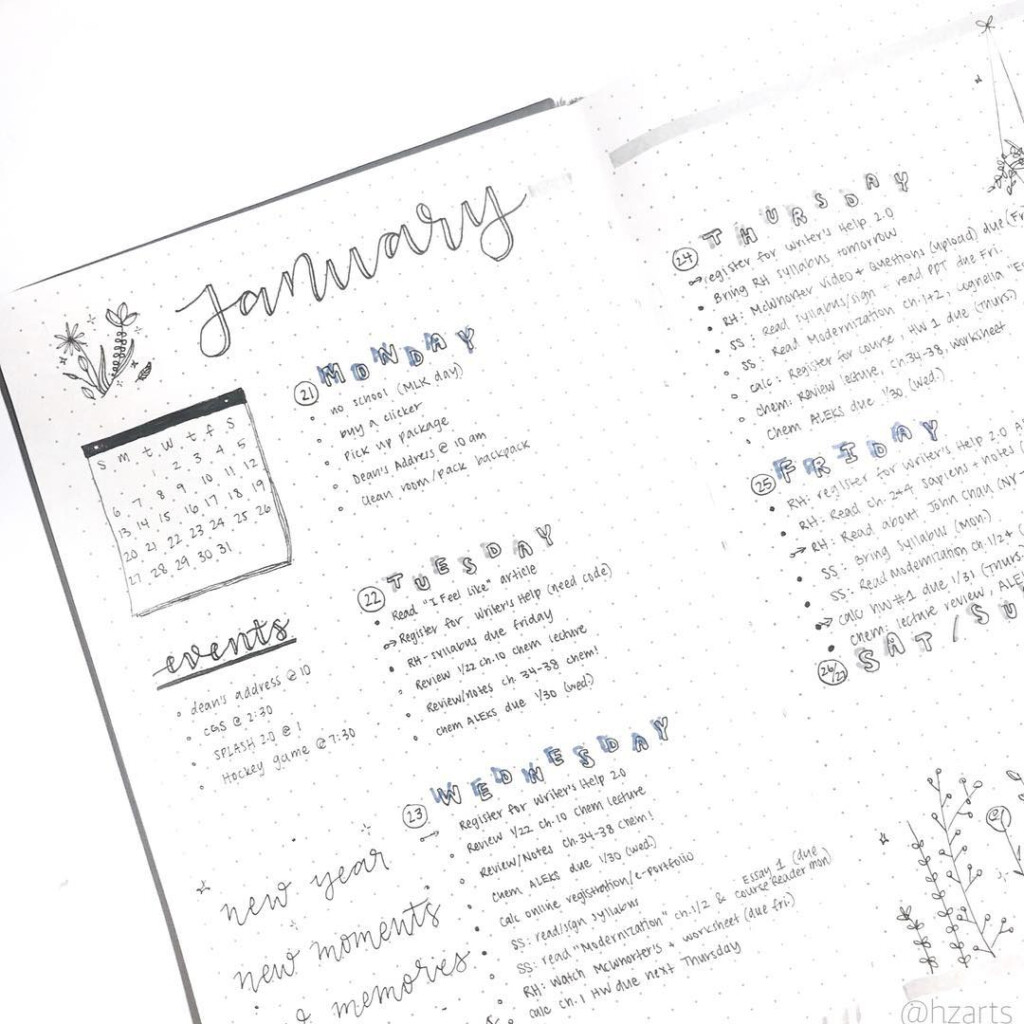 January
s m t w t f s
1 2 3 4 5
6 7 8 9 10 11 12
13 14 15 16 17 18 19
20 21 22 23 24 25 26
27 28 29 30 31
events
dean's address @ 10
CGS @ 2:30
SPLASH 2.0 @ 1
Hockey game @ 7:30
new year
new moments
memories
21 MONDAY
no school (MLK day)
buy a clicker
Pick up package
Dean's Address @ 10 am
clean room/pack backpack
22 TUESDAY
Read "I Feel Like" article
Register for Writer's Help (need code)
RH-syllabus due friday
Review 1/22 ch.10 chem lecture
Review/notes ch. 34-38 chem!
chem ALEKS due 1/30 (wed)
23 WEDNESDAY
Register for Writer's Help 2.0
Review 1/22 ch.10 chem lecture
Review/Notes ch.34-38 chem!
chem ALEKS due 1/30 (wed.)
calc online registration/e-portfolio
SS: read/sign syllabus
SS: read "Modernization" ch.1/2 & Essay 1 (due course Reader mon)
RH: watch McWhorter's + worksheet (due fri)
calc ch.1 HW due next Thursday
24 THURSDAY
register for Writer's Help 2.0
Bring RH syllabus tomorrow
RH: McWhorter Video + Questions (upload) due (Fr
SS: Read syllabus/sign + read PPT due Fri.
SS: Read Modernization ch.1+2,
calc: Register for course, HW 1 due (Thurs.)
chem: Review lecture, ch.34-38, worksheet
Chem ALEKS due 1/30 (wed.)
25 FRIDAY
RH: register for Writer's Help 2.0
RH: Read ch. 2+4 Sapiens + notes
RH: Read about John Chau
SS: Bring Syllabus (mon.)
SS: Read Modernization ch.1/2+
calc hw #1 due 1/31 (Thurs
chem: lecture review, ALE
26/27 SAT/SU
@hzarts